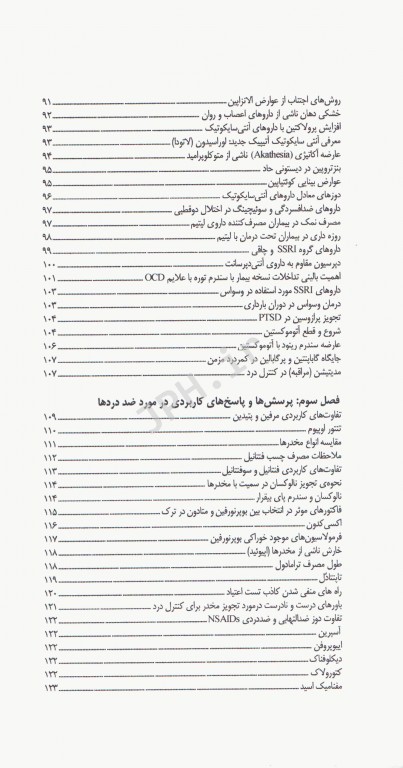 روش‌های اجتناب از عوارض الانزاپین ۹۱
خشکی دهان ناشی از داروهای اعصاب و روان ۹۲
افزایش پرولاکتین با داروهای آنتی‌سایکوتیک ۹۳
معرفی آنتی سایکوتیک آتیپیک جدید: لوراسیدون (لاتودا) ۹۳
عارضه آکاتژی (Akathesia) ناشی از متوکلوپرامید ۹۴
بنزتروپین در دیستونی حاد ۹۵
عوارض بینایی کوئتیاپین ۹۵
دوزهای معادل داروهای آنتی‌سایکوتیک ۹۶
داروهای ضدافسردگی و سوئیچینگ در اختلال دوقطبی ۹۷
مصرف نمک در بیماران مصرف‌کننده داروی لیتیم ۹۷
روزه داری در بیماران تحت درمان با لیتیم ۹۸
داروهای گروه SSRI و چاقی ۹۹
دپرسیون مقاوم به داروی آنتی‌دپرسانت ۱۰۰
اهمیت بالینی تداخلات نسخه بیمار با سندرم توره با علایم OCD ۱۰۱
داروهای SSRI مورد استفاده در وسواس ۱۰۳
درمان وسواس در دوران بارداری ۱۰۳
تجویز پرازوسین در PTSD ۱۰۴
شروع و قطع آتوموکستین ۱۰۴
عارضه سندرم رینود با آتوموکستین ۱۰۶
جایگاه گاباپنتین و پرگابالین در کمردرد مزمن ۱۰۷
مدیتیشن (مراقبه) در کنترل درد ۱۰۷
فصل سوم: پرسش‌ها و پاسخ‌های کاربردی در مورد ضد دردها
تفاوت‌های کاربردی مرفین و پتیدین ۱۰۹
تنتور اوپیوم ۱۱۰
مقایسه انواع مخدرها ۱۱۱
ملاحظات مصرف چسب فنتانیل ۱۱۲
تفاوت‌های کاربردی فنتانیل و سوفنتانیل ۱۱۳
نحوه‌ی تجویز نالوکسان در سمیت با مخدرها ۱۱۴
نالوکسان و سندرم پای بیقرار ۱۱۴
فاکتورهای موثر در انتخاب بین بوپرنورفین و متادون در ترک ۱۱۵
اکسی‌کدون ۱۱۶
فرمولاسیون‌های موجود خوراکی بوپرنورفین ۱۱۷
خارش ناشی از مخدرها (اپیوئید) ۱۱۸
طول مصرف ترامادول ۱۱۸
تاپنتادُل ۱۱۹
راه های منفی شدن کاذب تست اعتیاد ۱۲۰
باورهای درست و نادرست درمورد تجویز مخدر برای کنترل درد ۱۲۱
تفاوت دوز ضدالتهابی و ضددردی NSAIDs ۱۲۲
آسپرین ۱۲۲
ایبوپروفن ۱۲۲
دیکلوفناک ۱۲۲
کتورولاک ۱۲۲
مفنامیک اسید ۱۲۳
JPH.ir